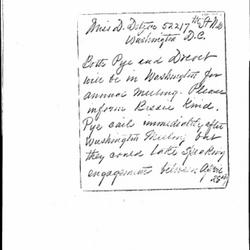 Miss D. Detzer 522 17th St N.W.
Washington D.C.
Both Pye and Drevet
will be in Washington for
annual meeting. Please
inform Rickie Kind.
Pye sails immediately after
Washington Meeting but
they could take speaking
engagements between April
25th